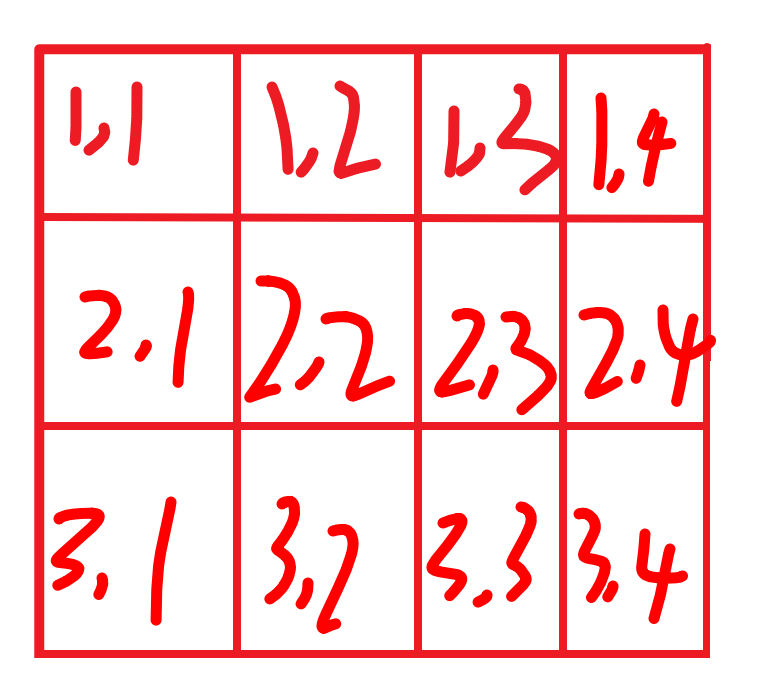 1,1 1,2 1,3 1,4
2,1 2,2 2,3 2,4
3,1 3,2 3,3 3,4